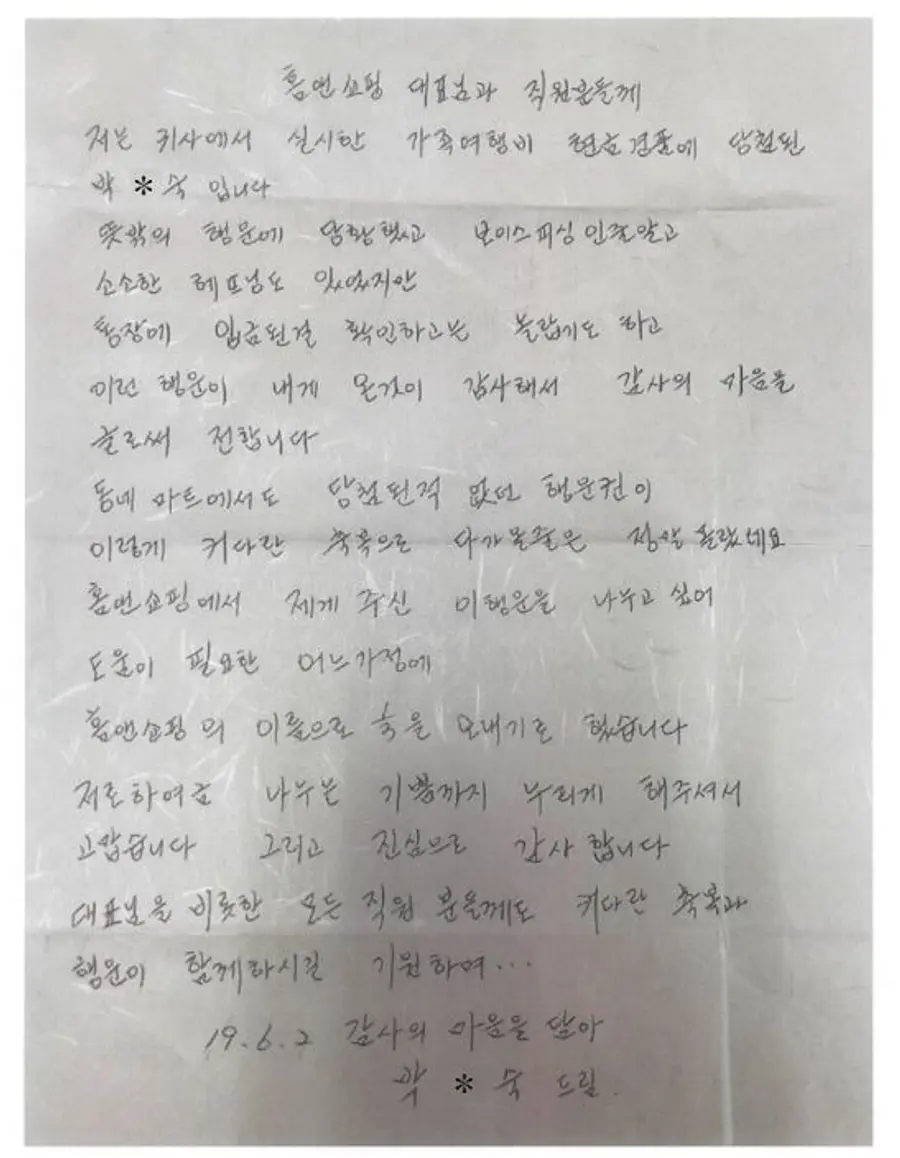 홈앤쇼핑 대표님과 직원분들께
저는 귀사에서 실시한 가족여행비 현금경품에 당첨된
박 * 숙 입니다
뜻밖의 행운에 당황했고 보이스피싱인줄알고
소소한 헤프닝도 있었지만
통장에 입금된걸 확인하고는 놀랍기도 하고
이런 행운이 내게 온것이 감사해서 감사의 마음을
글로써 전합니다
동네 마트에서도 당첨된적 없던 행운권이
이렇게 커다란 축복으로 다가올줄은 정말 몰랐네요
홈앤쇼핑에서 제게 주신 이행운을 나누고 싶어
도움이 필요한 어느가정에
홈앤쇼핑의 이름으로 쌀을 보내기로 했습니다
저로하여금 나누는 기쁨까지 누리게 해주셔서
고맙습니다 그리고 진심으로 감사 합니다
대표님을 비롯한 모든 직원 분들께도 커다란 축복과
행운이 함께하시길 기원하며...
19.6.2 감사의 마음을 담아
박 * 숙 드림.